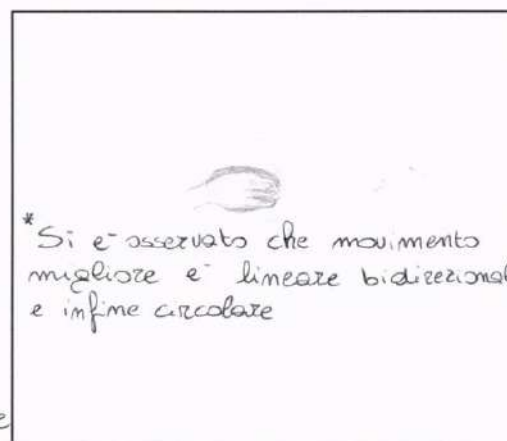 * Si e- osservato che movimento
migliore e- lineare bidirezional
e infine circolare
e